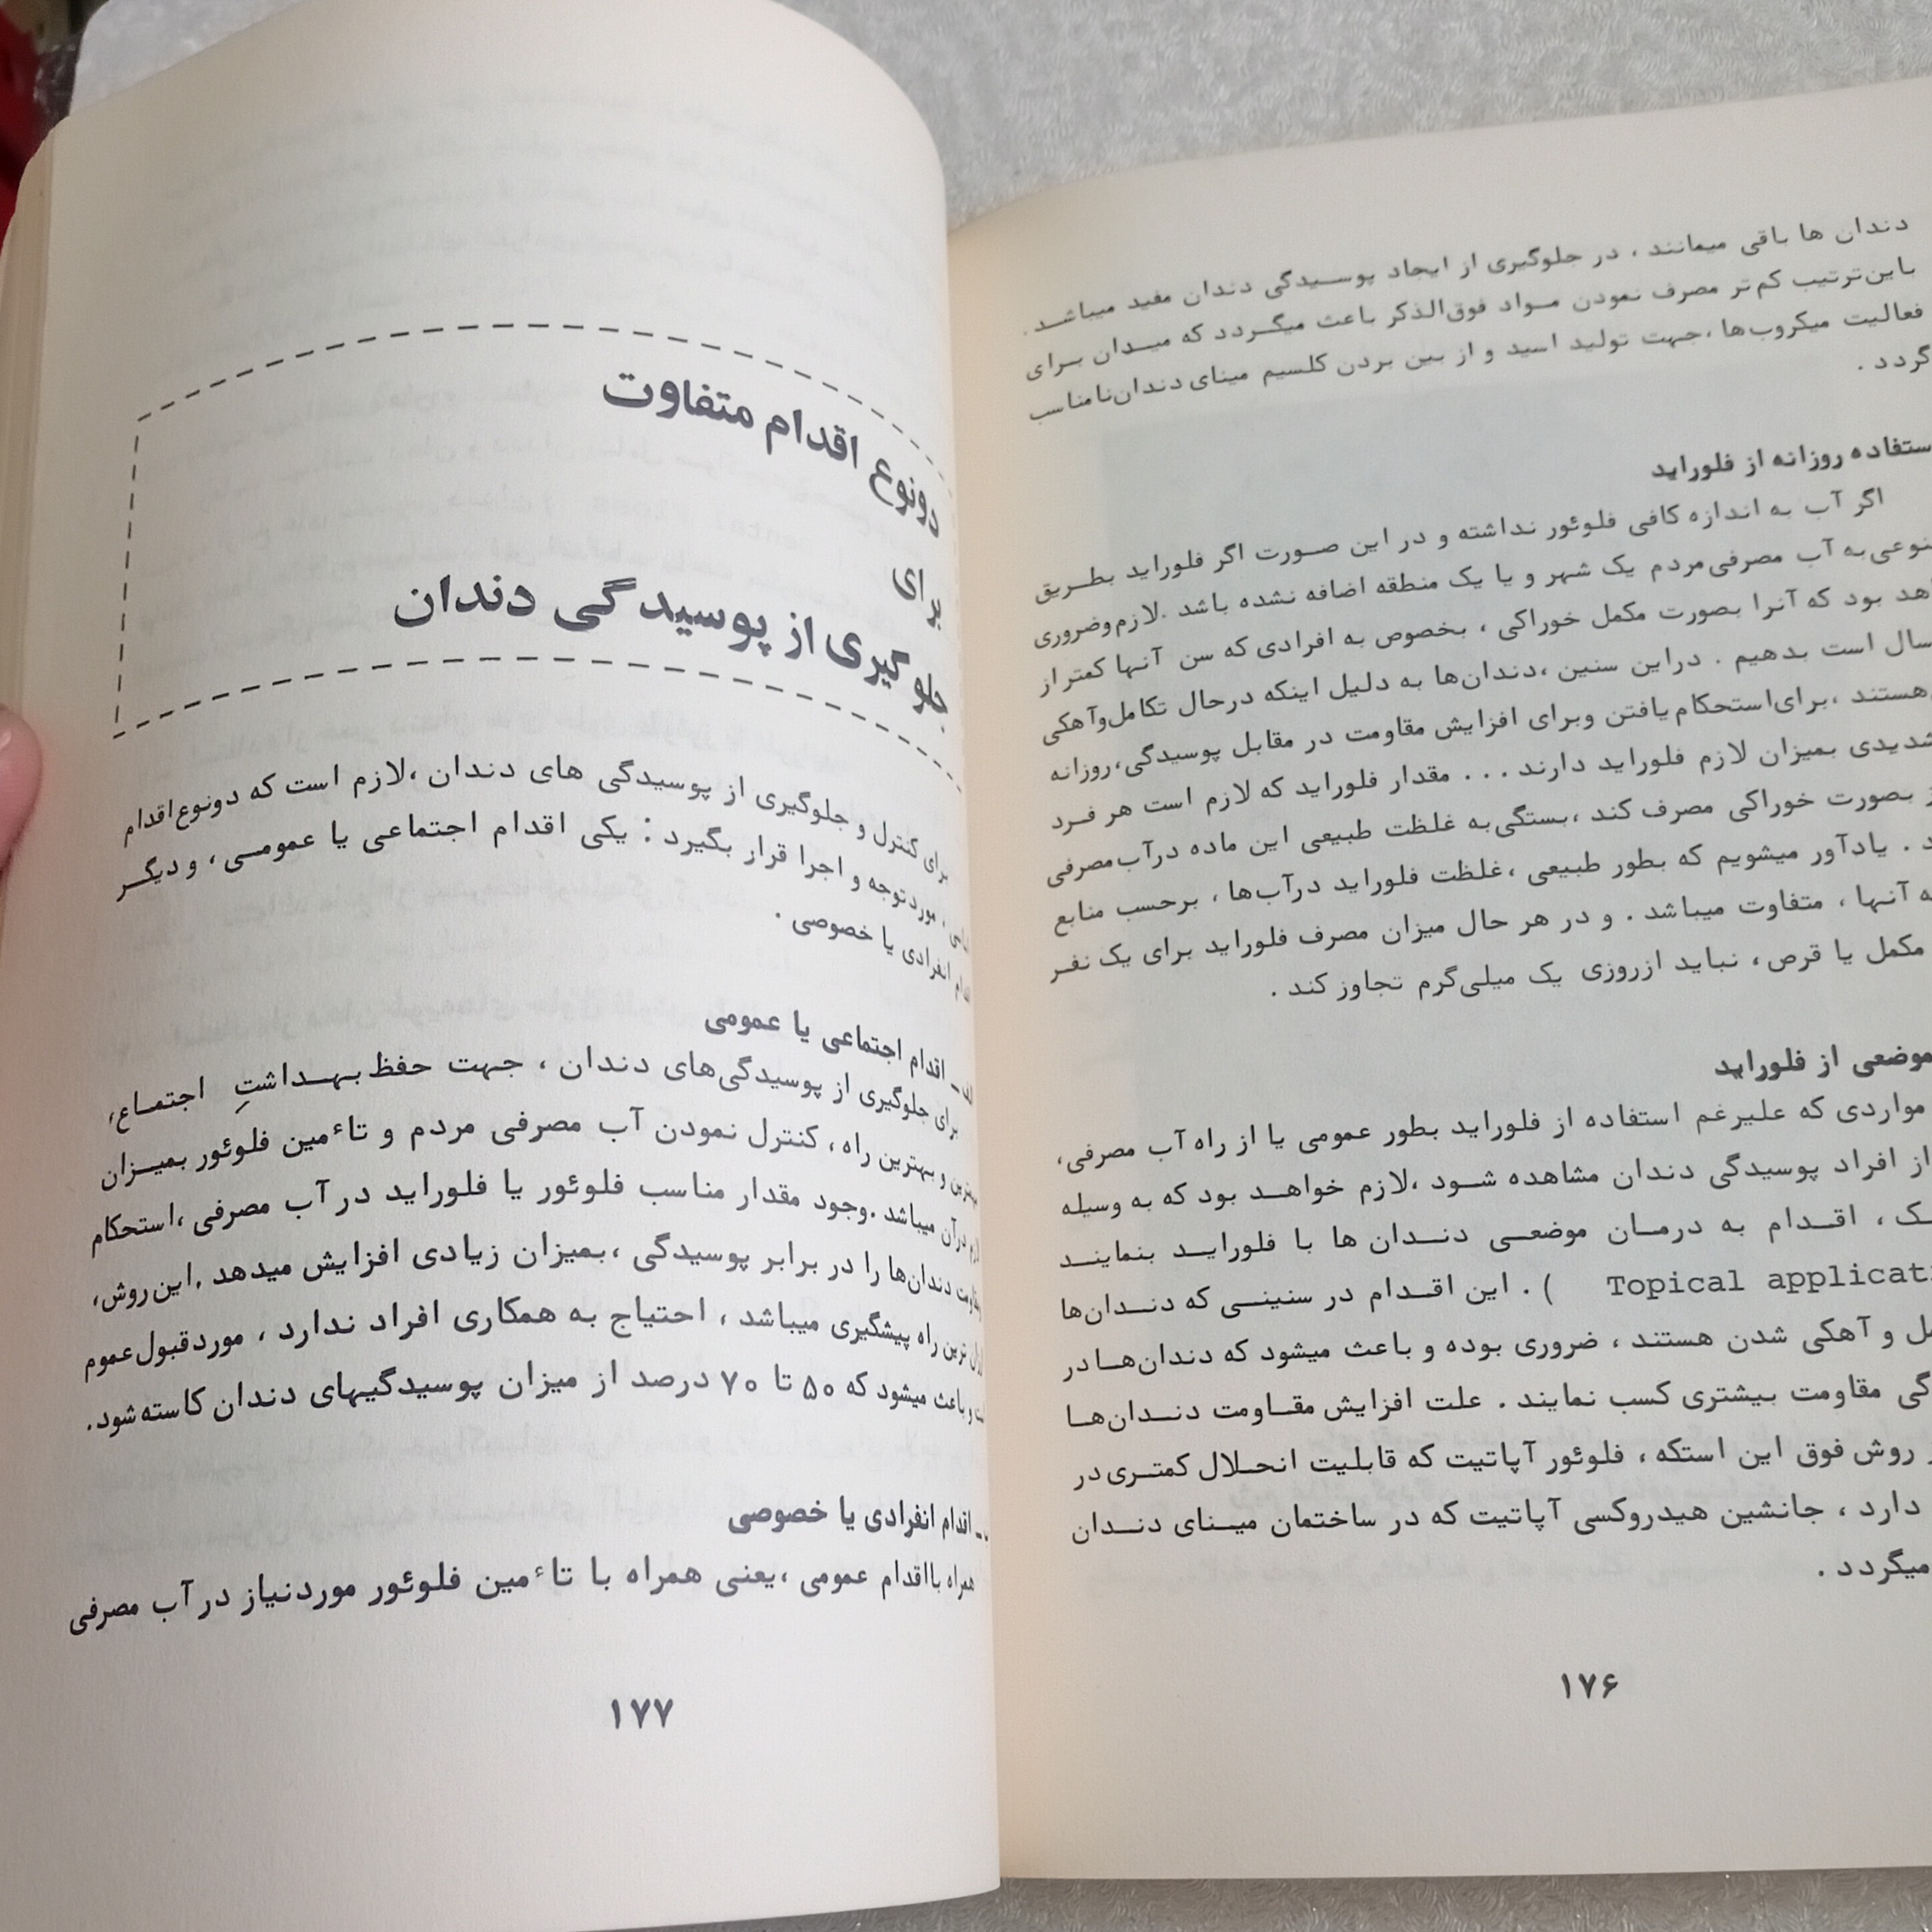 دندان ها باقی میمانند ، در جلوگیری از ایجاد پوسیدگی دندان مفید میباشد .
باین‌ترتیب کم‌تر مصرف نمودن مواد فوق‌الذکر باعث میگردد که میدان برای
فعالیت میکروب‌ها ،جهت تولید اسید و از بین بردن کلسیم مینای دندان‌نامناسب
گردد .
روزانه از فلوراید
اگر آب به اندازه کافی فلوئور نداشته و در این صورت اگر فلوراید بطریق
به آب مصرفی‌مردم یک شهر و یا یک منطقه اضافه نشده باشد .لازم‌وضروری
بود که آنرا بصورت مکمل خوراکی ، بخصوص به افرادی که سن آنها کمتر از
سال است بدهیم . دراین سنین ،دندان‌ها به دلیل اینکه درحال تکامل‌وآهکی
هستند ،برای‌استحکام‌یافتن وبرای افزایش مقاومت در مقابل پوسیدگی،روزانه
بمیزان لازم فلوراید دارند ... مقدار فلوراید که لازم است هر فرد
بصورت خوراکی مصرف کند ،بستگی‌به غلظت طبیعی این ماده درآب‌مصرفی
. یادآور میشویم که بطور طبیعی ،غلظت فلوراید درآب‌ها ، برحسب منابع
آنها ، متفاوت میباشد . و در هر حال میزان مصرف فلوراید برای یک نفر
مکمل یا قرص ، نباید ازروزی یک میلی‌گرم تجاوز کند .
موضعی از فلوراید
مواردی که علیرغم استفاده از فلوراید بطور عمومی یا از راه آب مصرفی،
از افراد پوسیدگی دندان مشاهده شود ،لازم خواهد بود که به وسیله
، اقدام به درمان موضعی دندان ها با فلوراید بنمایند
Topical ) . این اقدام در سنینی که دندان‌ها
و آهکی شدن هستند ، ضروری بوده و باعث میشود که دندان‌ها در
مقاومت بیشتری کسب نمایند . علت افزایش مقاومت دندان‌ها
روش فوق این استکه ، فلوئور آپاتیت که قابلیت انحلال کمتری در
دارد ، جانشین هیدروکسی آپاتیت که در ساختمان مینای دندان
میگردد .
۱۷۶
دونوع اقدام متفاوت
برای
جلوگیری از پوسیدگی دندان
برای کنترل و جلوگیری از پوسیدگی های دندان ،لازم است که دونوع‌اقدام
، موردتوجه و اجرا قرار بگیرد : یکی اقدام اجتماعی یا عمومی ، و دیگر
انفرادی یا خصوصی .
ـ اقدام اجتماعی یا عمومی
برای جلوگیری از پوسیدگی‌های دندان ، جهت حفظ بهداشتِ اجتماع،
و بهترین راه ، کنترل نمودن آب مصرفی مردم و تاٴمین فلوئور بمیزان
درآن میباشد .وجود مقدار مناسب فلوئور یا فلوراید در آب مصرفی ،استحکام
دندان‌ها را در برابر پوسیدگی ،بمیزان زیادی افزایش میدهد .این روش،
ترین راه پیشگیری میباشد ، احتیاج به همکاری افراد ندارد ، موردقبول‌عموم
و باعث میشود که ۵۰ تا ۷۰ درصد از میزان پوسیدگیهای دندان کاسته‌شود.
ـ اقدام انفرادی یا خصوصی
همراه بااقدام عمومی ،یعنی همراه با تاٴمین فلوئور موردنیاز در آب مصرفی
۱۷۷